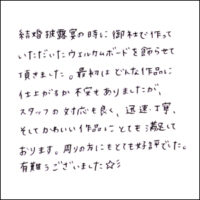 結婚披露宴の時に御社で作って
いただいたウェルカムボードを飾らせて
頂きました。最初はどんな作品に
仕上がるか不安もありましたが、
スタッフの対応も良く、迅速・丁寧、
そしてかわいい作品にとても満足して
おります。周りの方にもとても好評でした。
有難うございました☆彡